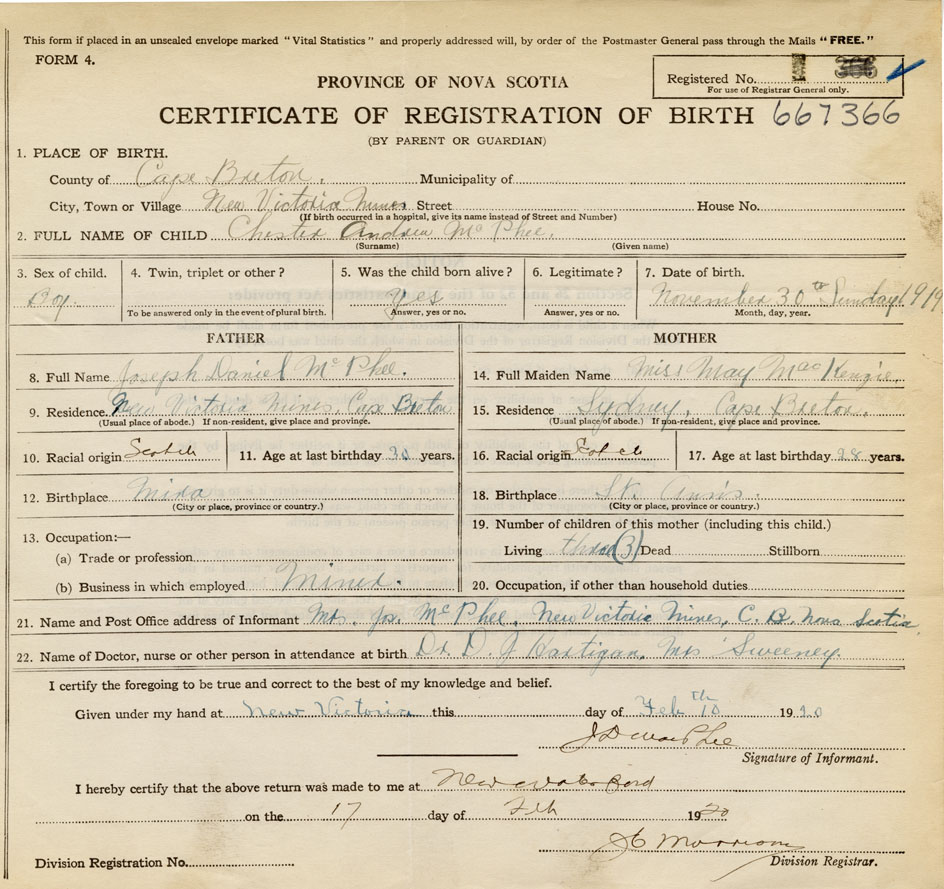 This form if placed in an unsealed envelope marked "Vital Statistics" and properly addressed will, by order of the Postmaster General pass through the Mails "FREE."
FORM 4.
Registered No.
For use of Registrar General only.
PROVINCE OF NOVA SCOTIA
CERTIFICATE OF REGISTRATION OF BIRTH 667366
(BY PARENT OR GUARDIAN)
1. PLACE OF BIRTH.
County of Cape Breton. Municipality of
City, Town or Village New Victoria Mines Street House No.
(If birth occurred in a hospital, give its name instead of Street and Number)
2. FULL NAME OF CHILD Chester Andrew Mc Phee.
(Surname) (Given name)
3. Sex of child. 4. Twin, triplet or other? 5. Was the child born alive? 6. Legitimate? 7. Date of birth.
Boy. Yes November 30th Sunday 1919
To be answered only in the event of plural birth. Answer, yes or no. Answer, yes or no. Month, day, year.
FATHER MOTHER
8. Full Name Joseph Daniel Mc Phee. 14. Full Maiden Name Miss May Mac Kenzie.
9. Residence. New Victoria Mines Cape Breton 15. Residence Sydney, Cape Breton.
(Usual place of abode.) If non-resident, give place and province. (Usual place of abode.) If non-resident, give place and province.
10. Racial origin Scotch 11. Age at last birthday 30 years. 16. Racial origin Scotch 17. Age at last birthday 28 years.
12. Birthplace Mira 18. Birthplace St. Ann's.
(City or place, province or country.) (City or place, province or country.)
13. Occupation:— 19. Number of children of this mother (including this child.)
(a) Trade or profession Living three (3) Dead Stillborn
(b) Business in which employed Miner. 20. Occupation, if other than household duties
21. Name and Post Office address of Informant Mrs. Jos. Mc Phee, New Victoria Mines, C. B. Nova Scotia
22. Name of Doctor, nurse or other person in attendance at birth Dr. D. J Hartigan, Mrs Sweeney.
I certify the foregoing to be true and correct to the best of my knowledge and belief.
Given under my hand at New Victoria this day of Feb 10th 1920
J D MacPhee
Signature of Informant.
I hereby certify that the above return was made to me at New Waterford
on the 17 day of Feb 1920
Morrison
Division Registration No. Division Registrar.